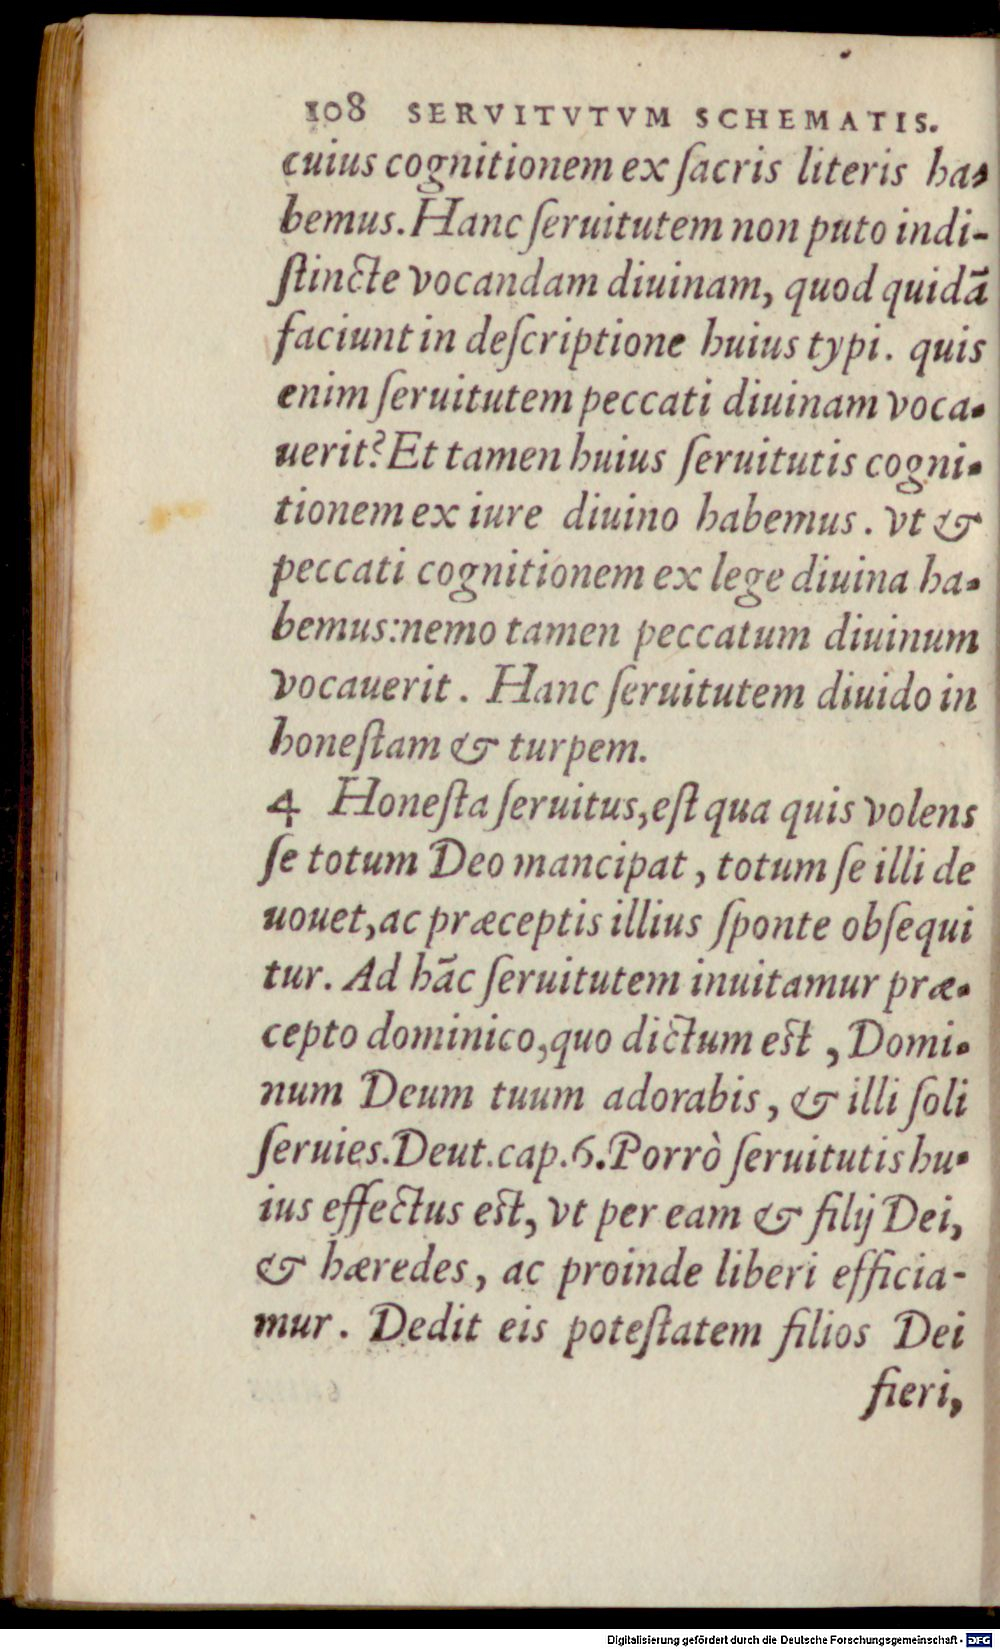 108 SERVITVTVM SCHEMATIS.
cuius cognitionem ex ſacris literis ha-
bemus. Hanc ſeruitutem non puto indi-
ſtincte vocandam diuinam, quod quidā
faciunt in deſcriptione huius typi. quis
enim ſeruitutem peccati diuinam voca-
uerit? Et tamen huius ſeruitutis cogni-
tionem ex iure diuino habemus. vt &
peccati cognitionem ex lege diuina ha-
bemus: nemo tamen peccatum diuinum
vocauerit. Hanc ſeruitutem diuido in
honeſtam & turpem.
4 Honeſta ſeruitus, eſt qua quis volens
ſe totum Deo mancipat, totum ſe illi de
uouet, ac præceptis illius ſponte obſequi
tur. Ad hāc ſeruitutem inuitamur præ-
cepto dominico, quo dictum est, Domi-
num Deum tuum adorabis, & illi ſoli
ſeruies. Deut. cap. 6. Porrò ſeruitutis hu-
ius effectus est, vt per eam & filij Dei,
& hæredes, ac proinde liberi efficia-
mur. Dedit eis poteſtatem filios Dei
fieri,
Digitalisierung gefördert durch die Deutsche Forschungsgemeinschaft - DFG